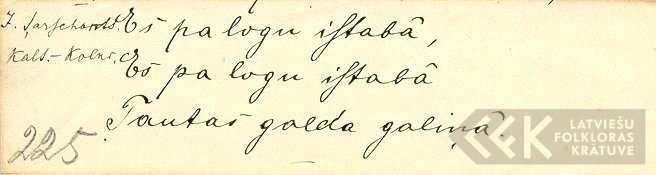 Es pa logu istabā,
Kals.-Kolns. Es pa logu istabā
Tautas galda galiņā.
225
LATVIEŠU
FOLKLORAS
KRĀTUVE